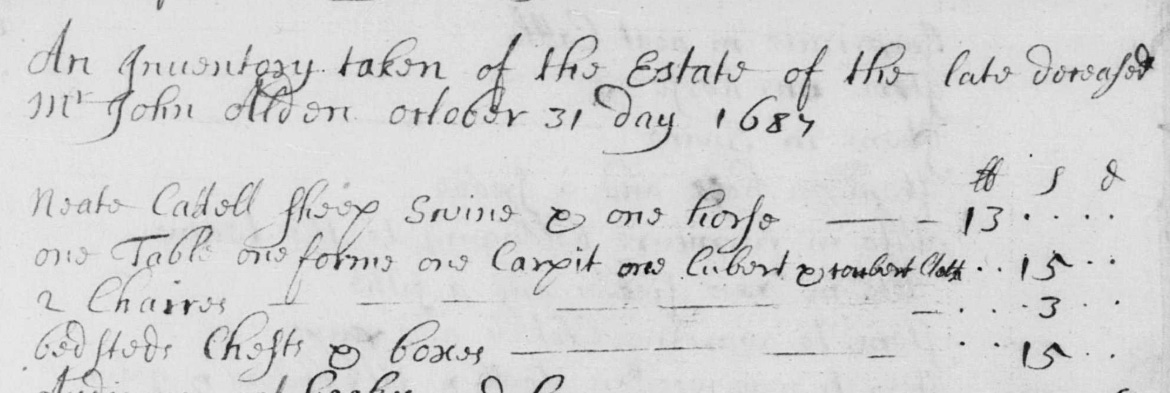 An Inventory taken of the Estate of the late deceased
Mr John Alden october 31 day 1687
li s d
Neate Cattell sheep Swine & one horse — — 13 · · · ·
one Table one forme one Carpit one Cubert & coubert Cloth · · 15 · ·
2 Chaires — — — — — — · · 3 · ·
bedsteds Chests & boxes — — — · · 15 · ·